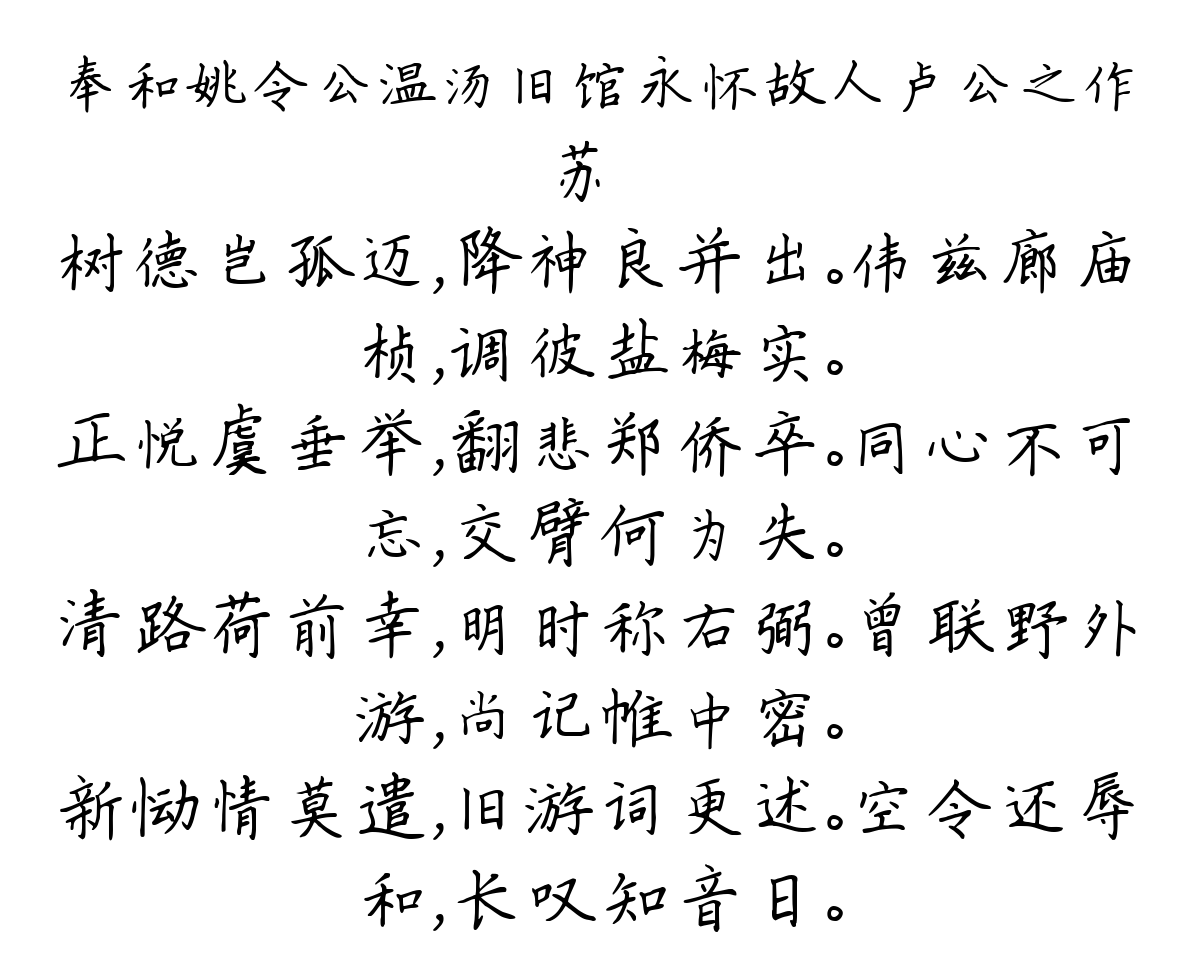 奉和姚令公温汤旧馆永怀故人卢公之作
苏
树德岂孤迈,降神良并出。伟兹廊庙
桢,调彼盐梅实。
正悦虞垂举,翻悲郑侨卒。同心不可
忘,交臂何为失。
清路荷前幸,明时称右弼。曾联野外
游,尚记帷中密。
新恸情莫遣,旧游词更述。空令还辱
和,长叹知音日。